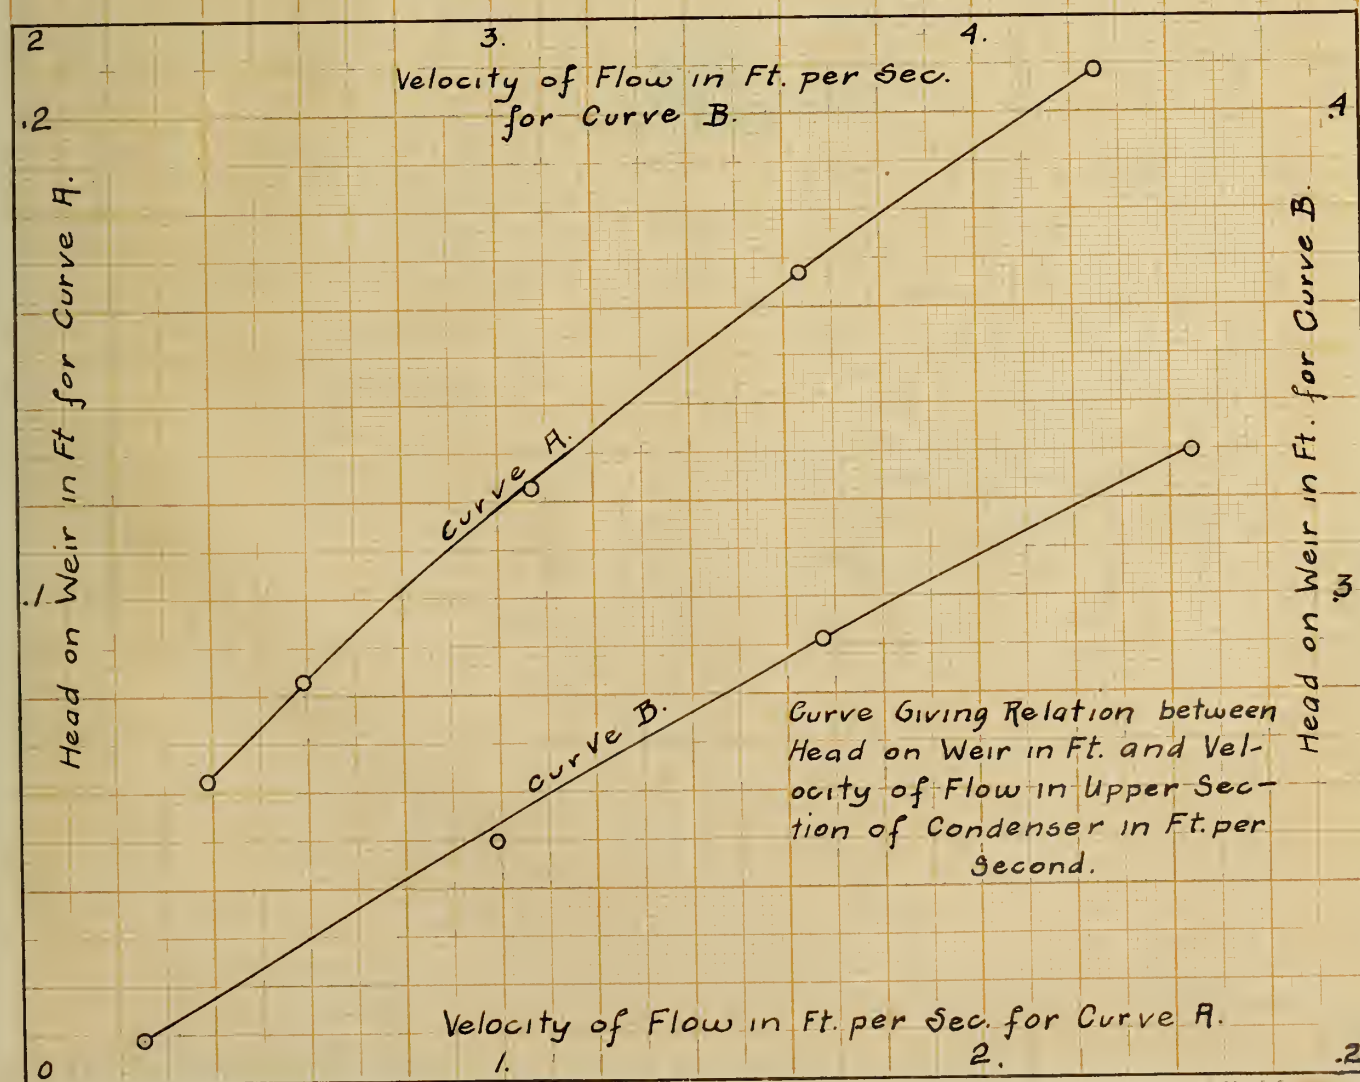 2 3. 4.
Velocity of Flow in Ft. per Sec.
for Curve B.
.2
.4
Head on Weir in Ft for Curve A.
Head on Weir in Ft. for Curve B.
Curve A.
.1
.3
Curve B.
Curve Giving Relation between
Head on Weir in Ft. and Vel-
ocity of Flow in Upper Sec-
tion of Condenser in Ft. per
Second.
Velocity of Flow in Ft. per Sec. for Curve A.
0 1. 2. .2